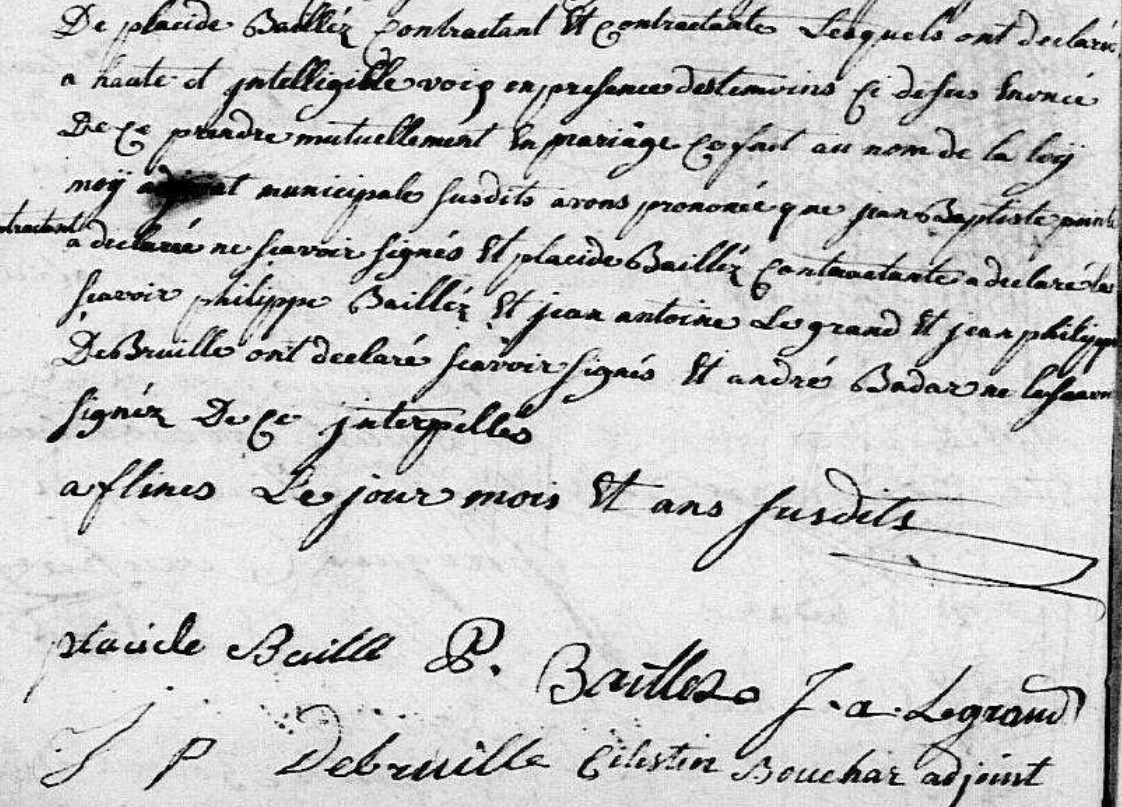 De placide Bailléz Contractant Et Contractante Lesquels ont declarée
a haute et jntelligible voix en presence des temoins Ci desus Enoncé
De Ce prendre mutuellement En mariâge Ce fait au nom de la loÿ
moÿ adjoint municipale susdits avons prononcée que jean Baptiste pointe
a declarée ne scavoir signés Et placide Bailléz Contractante a declaré la
scavoir philippe Bailléz Et jean antoine Le grand Et jean philippe
DeBruille ont declaré scavoir signés Et andré Badar ne le scavoir
signéz De Ce jnterpellés
a flines Le jour mois Et ans susdits
placide Baille P. Baillez J. a. Legrand
J P Debruille Celestin Bouchar adjoint